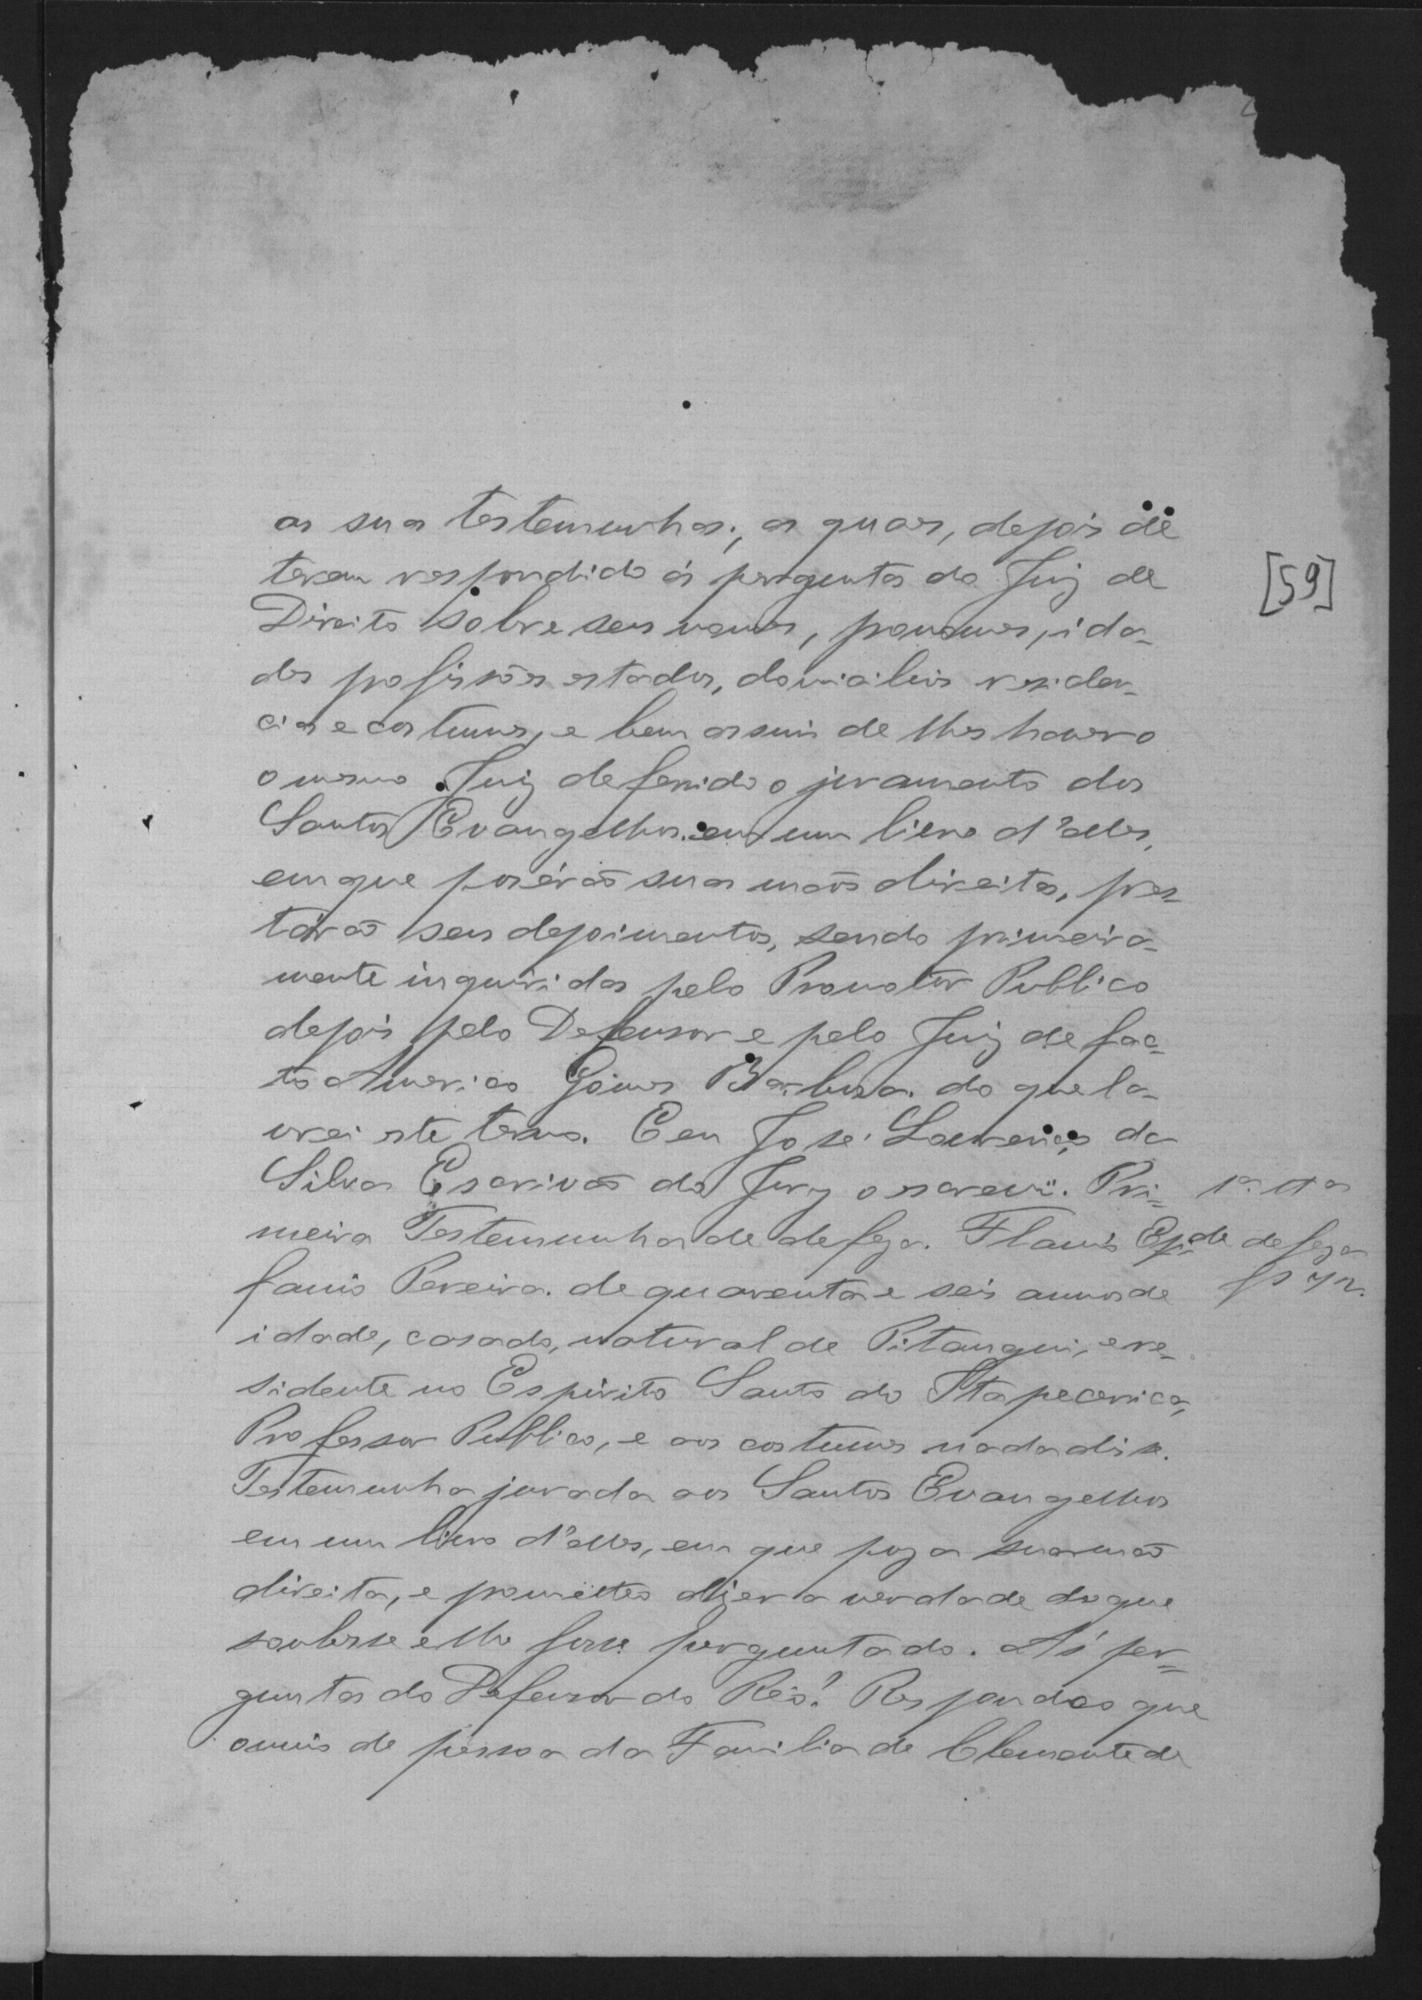 as suas testemunhas; as quaes, depois de
terem respondido ás perguntas do Juiz de
Direito sobre seus nomes, pronomes, ida-
des profissões estados, domicilios residen-
cias e costumes, e bem assim de lhes haver o
o mesmo Juiz deferido o juramento dos
Santos Evangelhos em um livro d'elles,
em que poserão suas mãos direitas, pres-
tárão seus depoimentos, sendo primeira-
mente inquiridas pelo Promotor Publico
depois pelo Defensor e pelo Juiz de fac-
to Americo Gomes Barbosa. do que la-
vrei este termo. E eu José Lourenço da
Silva Escrivão do Jury o escrevi. Pri-
meira Testemunha de defeza. Flavio Epi-
fanio Pereira. de quarenta e seis annos de
idade, casado, natural de Pitangui, e re-
sidente no Espirito Santo do Itapecerica,
Professor Publico, e aos costumes nada disse.
Testemunha jurada aos Santos Evangelhos
em um livro d'elles, em que poz a sua mão
direita, e prometteo dizer a verdade do que
soubesse e lhe fosse perguntado. Ás per-
guntas do Defensor do Réo? Respondeo que
ouvio de pessoa da Familia de Clemente de
[59]
1ª tta
de defeza